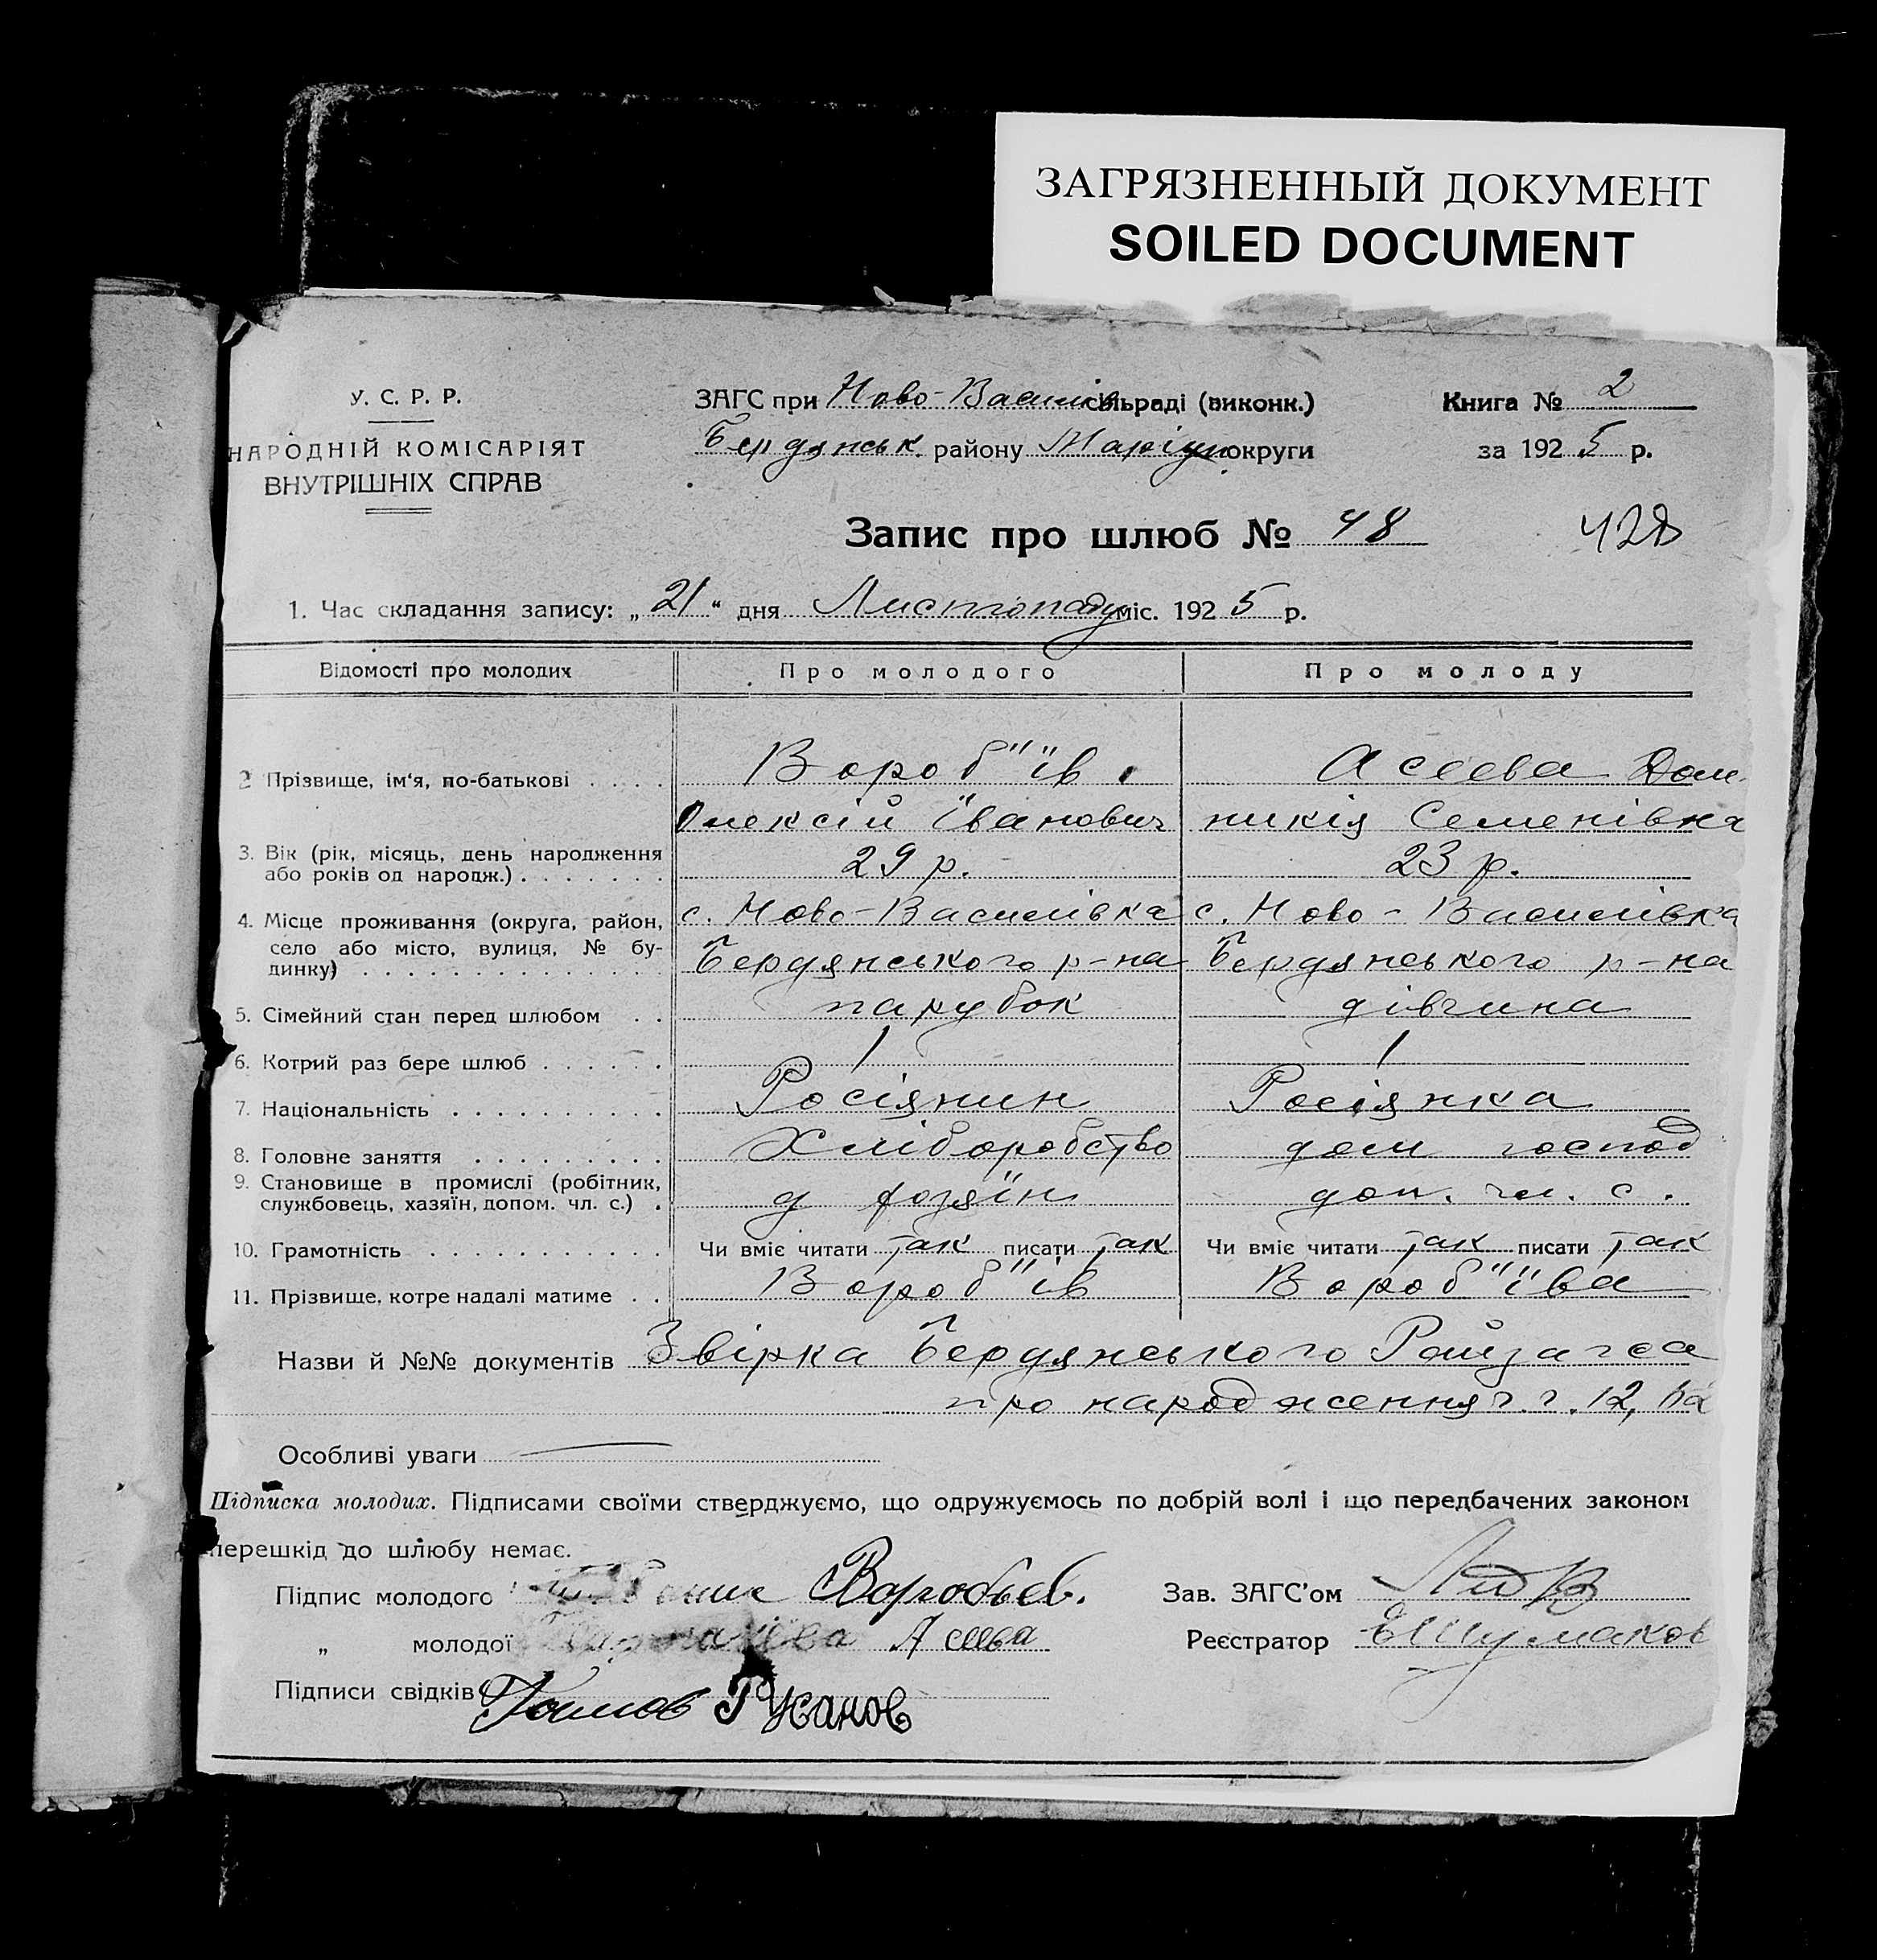 ЗАГРЯЗНЕННЫЙ ДОКУМЕНТ
SOILED DOCUMENT
У. С. Р. Р.
НАРОДНІЙ КОМІСАРІЯТ
ВНУТРІШНІХ СПРАВ
ЗАГС при Ново-Василів сільраді (виконк.)
Бердянськ. району Маріуп округи
Книга № 2
за 1925 р.
Запис про шлюб № 48
428
1. Час складання запису: „21“ дня Листопаду міс. 1925 р.
Відомості про молодих Про молодого Про молоду
2 Прізвище, ім‘я, по-батькові . . . . Вороб"їв. Асеева Дом-
Олексій Іванович никія Семенівна
3. Вік (рік, місяць, день народження 29 р. 23 р.
або років од народж.) . . . . . . .
4. Місце проживання (округа, район, с. Ново-Василівка с. Ново-Василівка
село або місто, вулиця, № бу- Бердянського р-на Бердянського р-на
динку) . . . . . . . . . . . . . .
5. Сімейний стан перед шлюбом . . парубок дівчина
6. Котрий раз бере шлюб . . . . . . 1 1
7. Національність . . . . . . . . . . Росіянин Росіянка
8. Головне заняття . . . . . . . . . Хліборобство дом господ
9. Становище в промислі (робітник,
службовець, хазяїн, допом. чл. с.) . доп. чл. с.
10. Грамотність . . . . . . . . . . . Чи вміє читати так писати так Чи вміє читати так писати так
11. Прізвище, котре надалі матиме . . Вороб"їв Вороб"їва
Назви й №№ документів Звірка Бердянського Райзагса
про народження г. г. 12,
Особливі уваги
Підписка молодих. Підписами своїми стверджуємо, що одружуємось по добрій волі і що передбачених законом
перешкід до шлюбу немає.
Підпис молодого Воробьев. Зав. ЗАГС'ом
„ молодої Асеева Реєстратор ЕШумаков
Підписи свідків